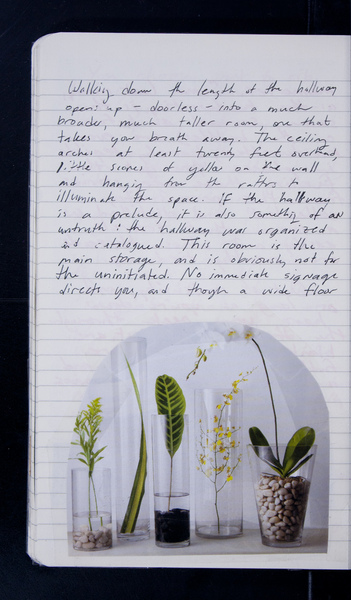 Walking down the length of the hallway
opens up - doorless - into a much
broader, much taller room, one that
takes your breath away. The ceiling
arches at least twenty feet overhead,
little scones of yellow on the wall
and hanging from the rafters to
illuminate the space. If the hallway
is a prelude, it is also something of an
untruth: the hallway was organized
and catalogued. This room is the
main storage, and is obviously not for
the uninitiated. No immediate signage
directs you, and though a wide floor